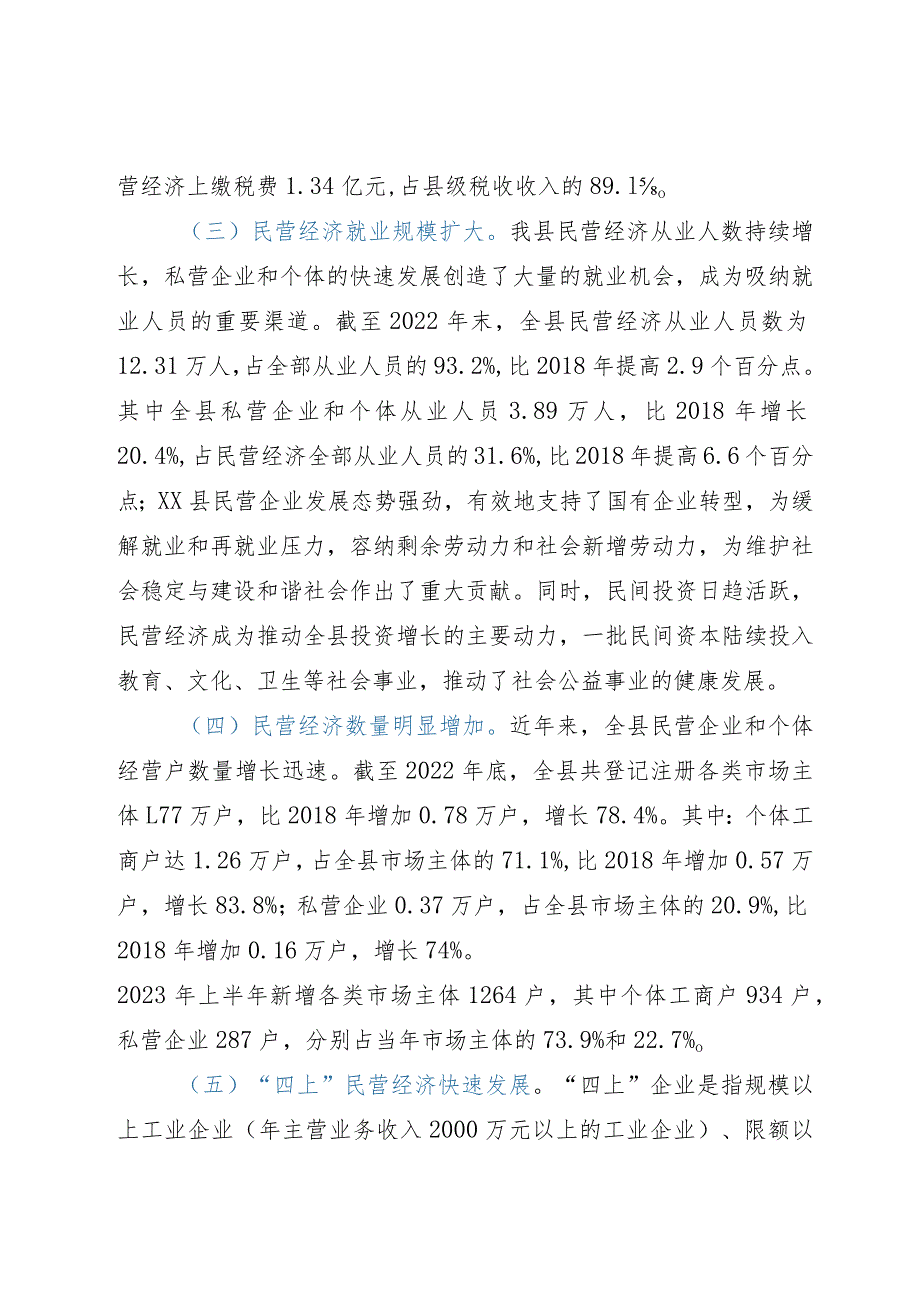 营经济上缴税费 1.34 亿元,占县级税收收入的 89.1%。
（三）民营经济就业规模扩大。我县民营经济从业人数持续增
长，私营企业和个体的快速发展创造了大量的就业机会，成为吸纳就
业人员的重要渠道。截至 2022 年末，全县民营经济从业人员数为
12.31 万人,占全部从业人员的 93.2%,比 2018 年提高 2.9 个百分点。
其中全县私营企业和个体从业人员 3.89 万人，比 2018 年增长
20.4%,占民营经济全部从业人员的 31.6%,比 2018 年提高 6.6 个百分
点；XX 县民营企业发展态势强劲，有效地支持了国有企业转型，为缓
解就业和再就业压力，容纳剩余劳动力和社会新增劳动力，为维护社
会稳定与建设和谐社会作出了重大贡献。同时，民间投资日趋活跃，
民营经济成为推动全县投资增长的主要动力，一批民间资本陆续投入
教育、文化、卫生等社会事业，推动了社会公益事业的健康发展。
（四）民营经济数量明显增加。近年来，全县民营企业和个体
经营户数量增长迅速。截至 2022 年底，全县共登记注册各类市场主
体 L77 万户，比 2018 年增加 0.78 万户，增长 78.4%。其中：个体工
商户达 1.26 万户，占全县市场主体的 71.1%,比 2018 年增加 0.57 万
户，增长 83.8%；私营企业 0.37 万户，占全县市场主体的 20.9%,比
2018 年增加 0.16 万户，增长 74%。
2023 年上半年新增各类市场主体 1264 户，其中个体工商户 934 户，
私营企业 287 户，分别占当年市场主体的 73.9%和 22.7%。
（五）“四上”民营经济快速发展。“四上”企业是指规模以
上工业企业（年主营业务收入 2000 万元以上的工业企业）、限额以